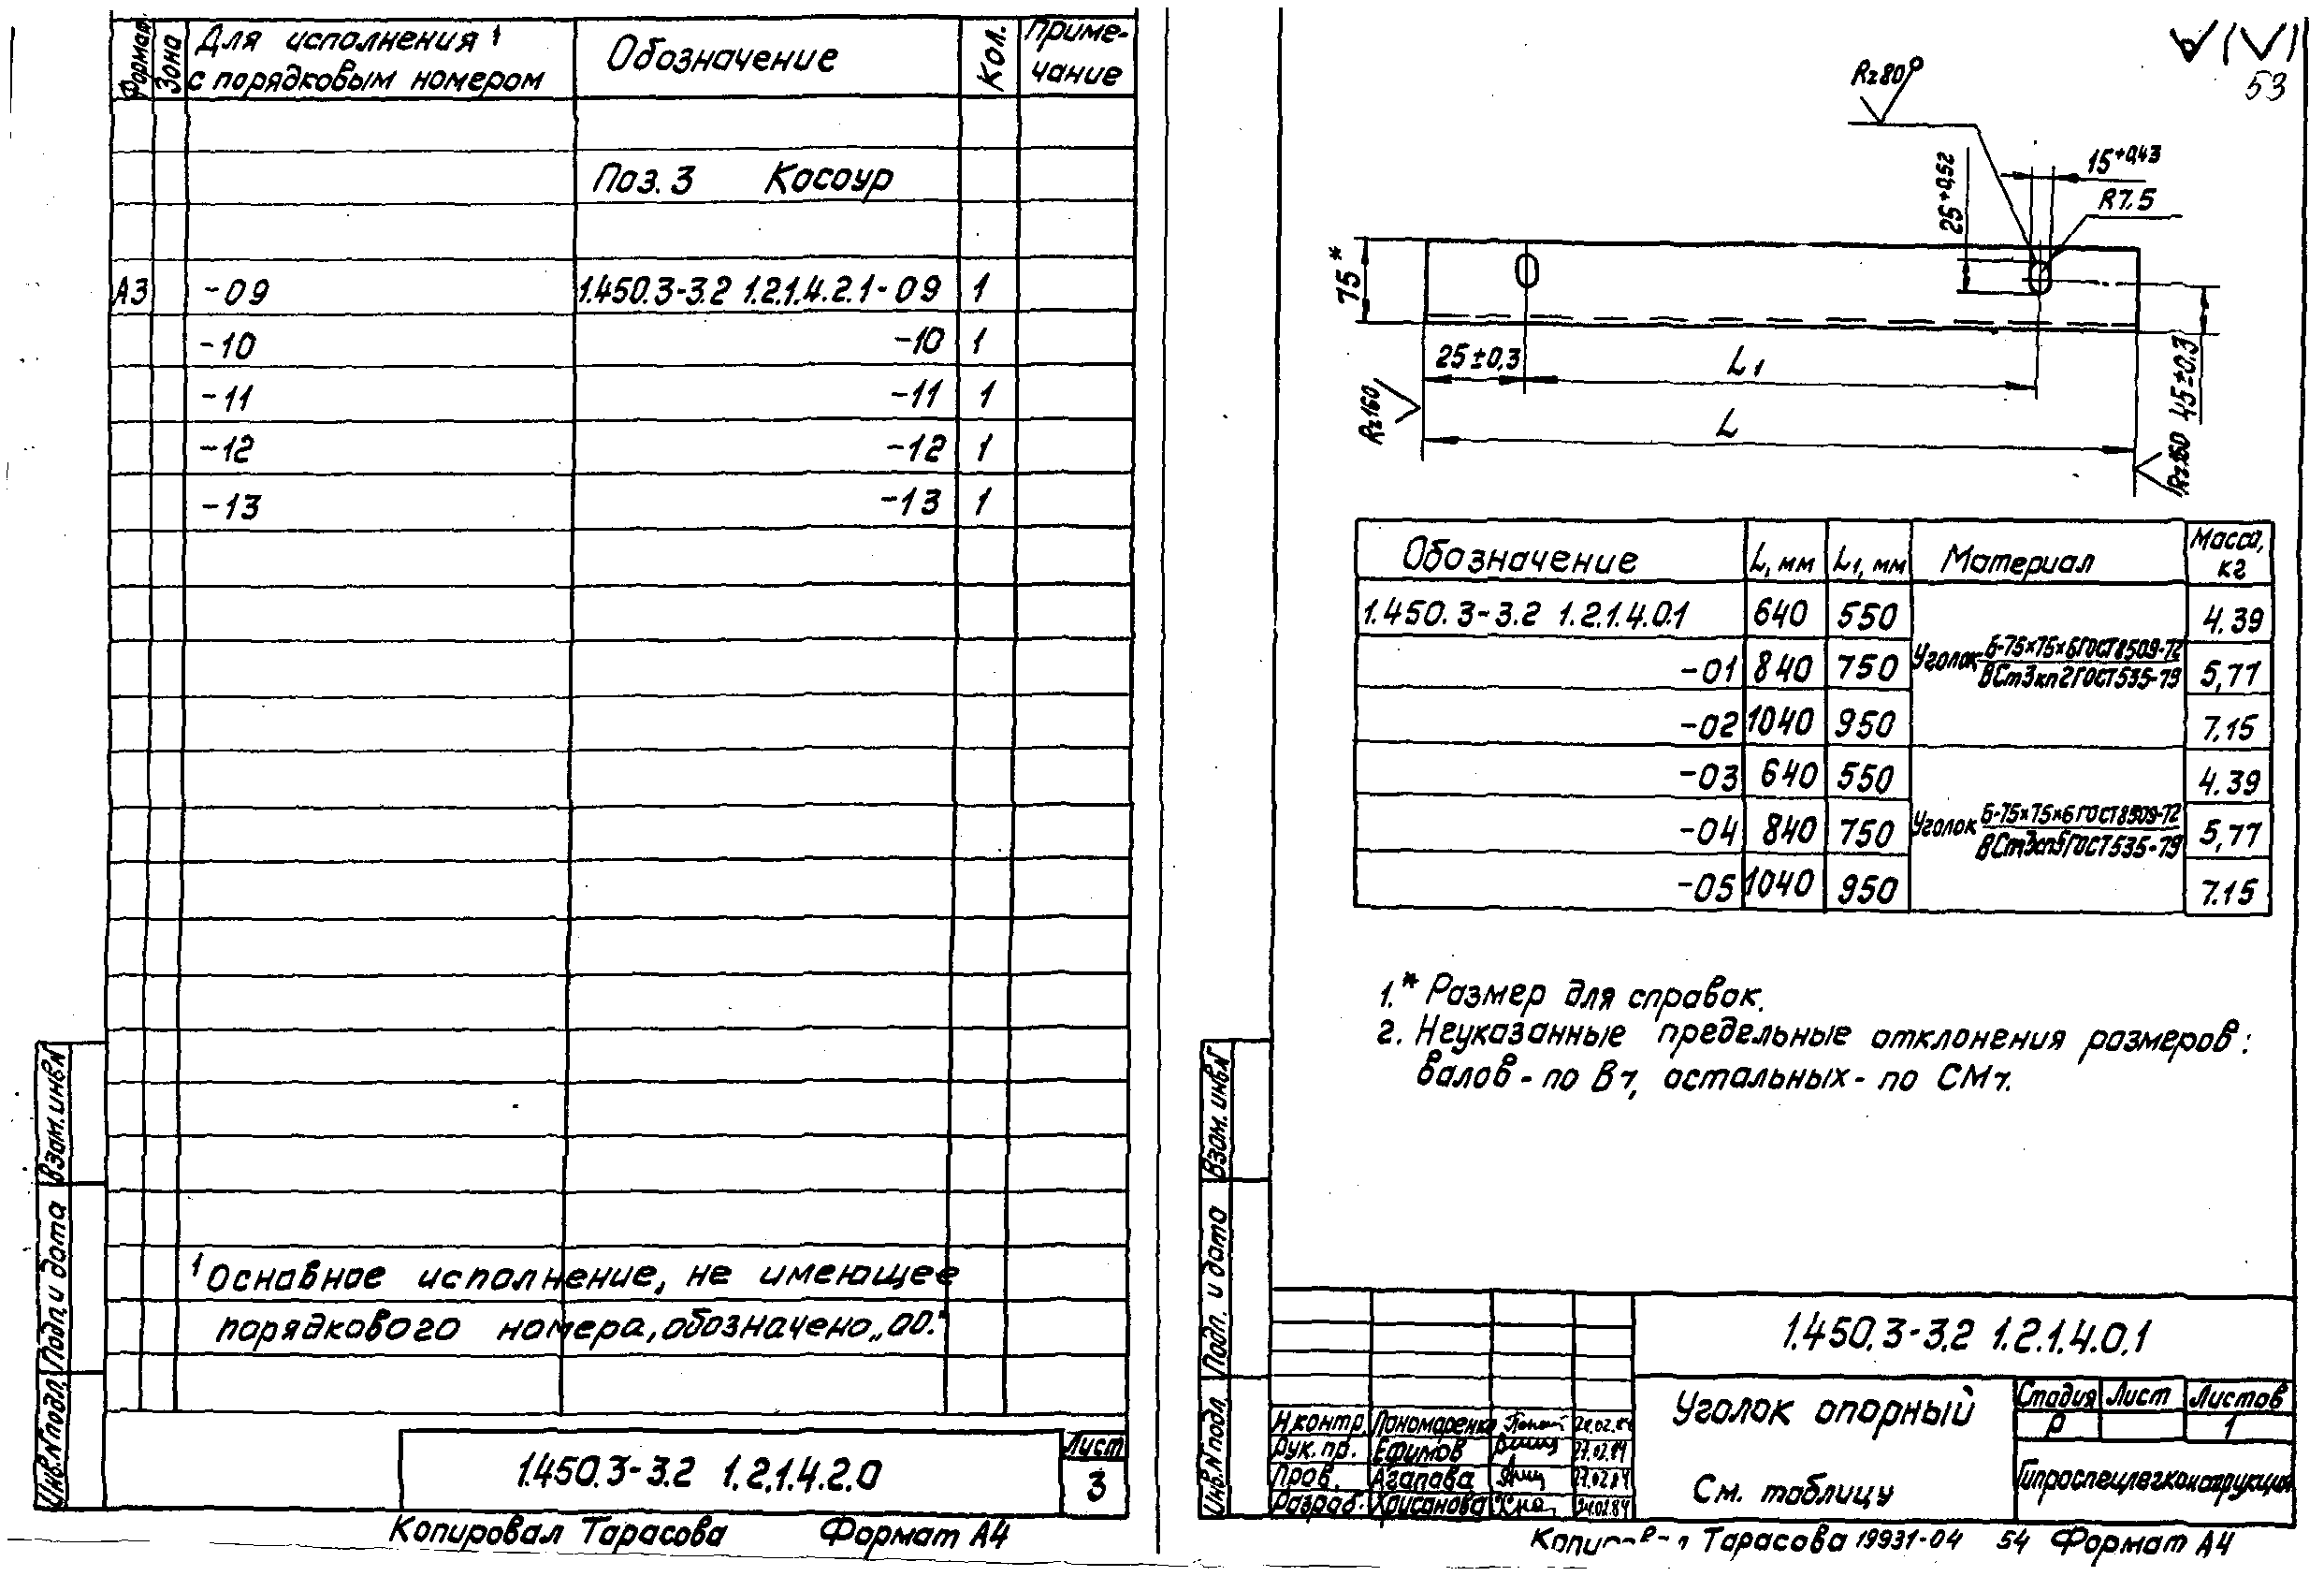 Формат
Зона
Для исполнения¹
с порядковым номером
Обозначение
Кол.
Приме-
чание
Поз. 3 Косоур
А3 -09 1.450.3-3.2 1.2.1.4.2.1-09 1
-10 -10 1
-11 -11 1
-12 -12 1
-13 -13 1
¹ Основное исполнение, не имеющее
порядкового номера, обозначено „00."
Взам. инв.N
Подп. и дата
Инв.N подл.
1.450.3-3.2 1.2.1.4.2.0
Лист
3
Копировал Тарасова Формат А4
53
Rz80
25+0,52
15+0,43
R7.5
75*
25±0,3
L1
L
Rz160
45±0.3
Rz160
Обозначение L, мм L1, мм Материал Масса, кг
1.450.3-3.2 1.2.1.4.0.1 640 550 4.39
-01 840 750 5,77
-02 1040 950 7.15
Уголок Б-75×75×6 ГОСТ 8509-72
ВСт3кп2 ГОСТ 535-79
-03 640 550 4.39
-04 840 750 5,77
-05 1040 950 7.15
Уголок Б-75×75×6 ГОСТ 8509-72
ВСт3сп5 ГОСТ 535-79
1.* Размер для справок.
2. Неуказанные предельные отклонения размеров:
валов - по В7, остальных - по СМ7.
Взам. инв.N
Подп. и дата
Инв.N подл.
1.450.3-3.2 1.2.1.4.0.1
Уголок опорный
См. таблицу
Стадия Лист Листов
Р 1
Гипроспецлегконструкция
Н.контр. Пономаренко
Рук. пр. Ефимов 27.02.84
Пров. Агапова 27.02.84
Разраб. Хрисанова 24.02.84
Тарасова 19931-04 54 Формат А4